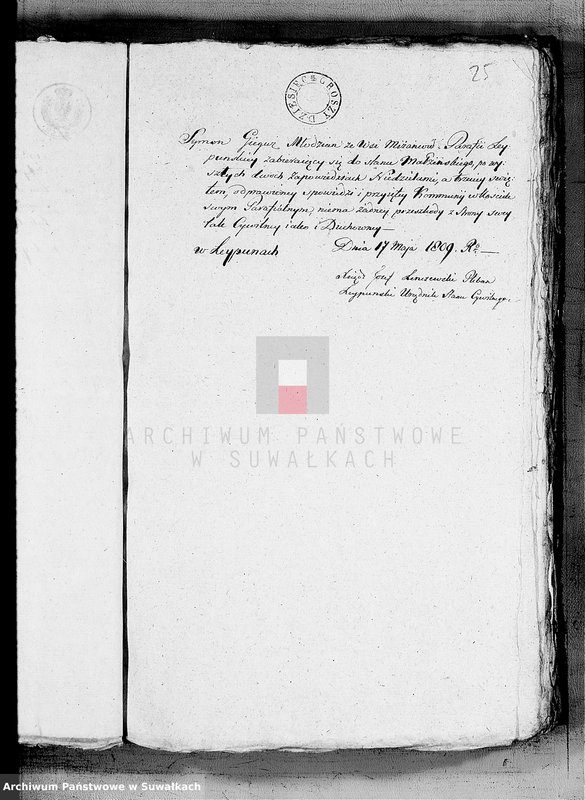 25
DZIESIĘĆ GROSZY
Symon Gieguz Młodzian ze Wsi Mizaniców Parafii Ley
punskiey zabieraiący się do stanu Małżeńskiego, po wy
szłych dwoch zapowiedziach Niedzielnemi, a trzeciy świę
tem, odprawioney spowiedzi i przyiętey Kommunij w kościele
swym Parafialnym, niema żadney przeszkody z strony swey
tak Cywilney iako i Duchowney —
w Leypunach Dnia 17 Maja 1809. Ro —
Xiądz Józef Leszczewski Pleban
Leypunski Urzędnik Stanu Cywilnego.
ARCHIWUM PAŃSTWOWE
W SUWAŁKACH
Archiwum Państwowe w Suwałkach